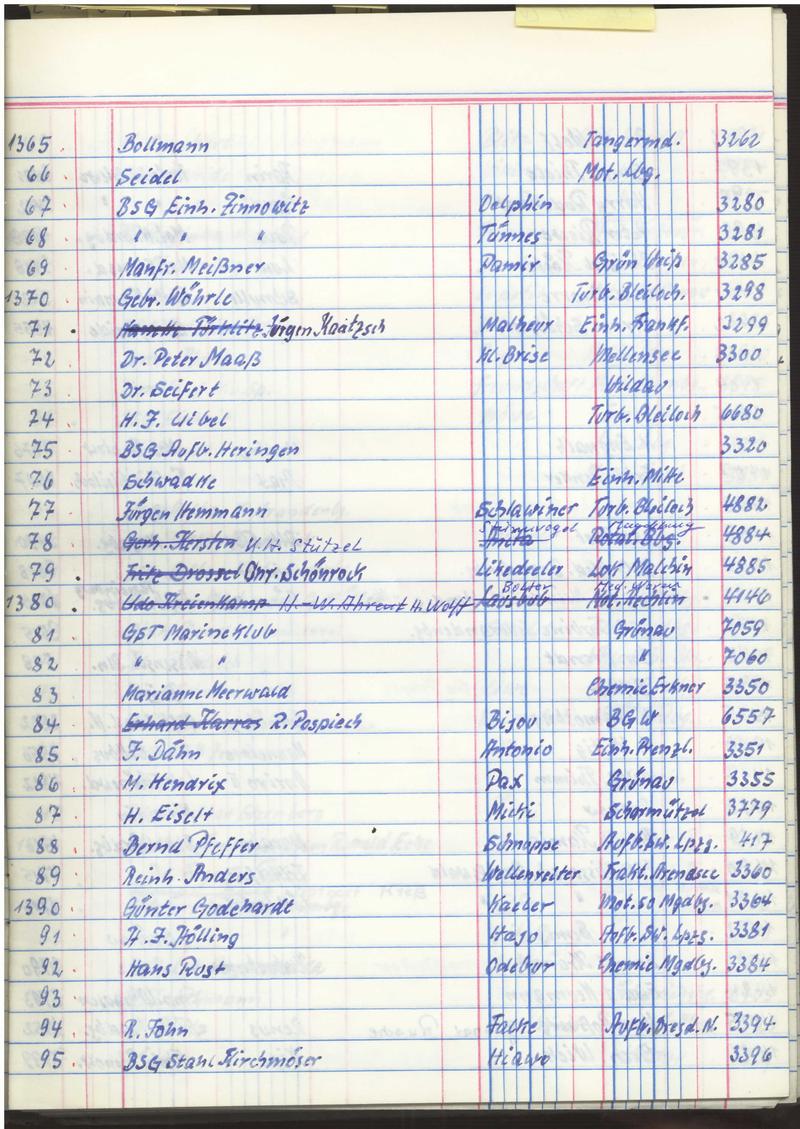 1365. Bollmann Tangermd. 3262
66 . Seidel Mot. Bbg.
67 . BSG Einh. Zinnowitz Delphin 3280
68 . " " " Tünnes 3281
69 . Manfr. Meißner Pamir Grün Weiß 3285
1370 . Gebr. Wöhrle Turb. Bleiloch. 3298
71 . Jürgen Kaatzsch Malheur Einh. Frankf. 3299
72 . Dr. Peter Maaß Kl. Brise Mellensee 3300
73 . Dr. Seifert Wildau
74 . H. F. Uibel Turb. Bleiloch 6680
75 . BSG Aufb. Heringen 3320
76 . Schwadke Einh. Mitte
77 . Jürgen Hemmann Schlawiner Turb. Bleiloch 4882
Sturmvogel Magdeburg
78 . Gerh. Kersten K. H. Stützel Anita Rotat. Bbg. 4884
79 . Fritz Drossel Chr. Schönrock Lok Malchin 4885
1380 . Udo Kreienkamp H.-W. Ahrent H. Wolff Mot. Rechlin 4146
81 . GST Marineklub Grünau 7059
82 . " " " 7060
83 . Marianne Meerwald Chemie Erkner 3350
84 . Erhard Karras R. Pospiech Bijou BGW 6557
85 . F. Dähn Antonio Einh. Prenzl. 3351
86 . M. Hendrix Pax Grünau 3355
87 . H. Eiselt Micki Scharmützel 3779
88 . Bernd Pfeffer Schnuppe Aufb. SW. Lpzg. 417
89 . Reinh. Anders Wellenreiter Trakt. Arendsee 3360
1390 . Günter Godehardt Kaeler Mot. SO Mgdbg. 3364
91 . H. J. Hölling Hajo Aufb. SW. Lpzg. 3381
92 . Hans Rust Odebar Chemie Mgdbg. 3384
93 .
94 . R. John Falke Aufb. Dresd. N. 3394
95 . BSG Stahl Kirchmöser Hiawo 3396